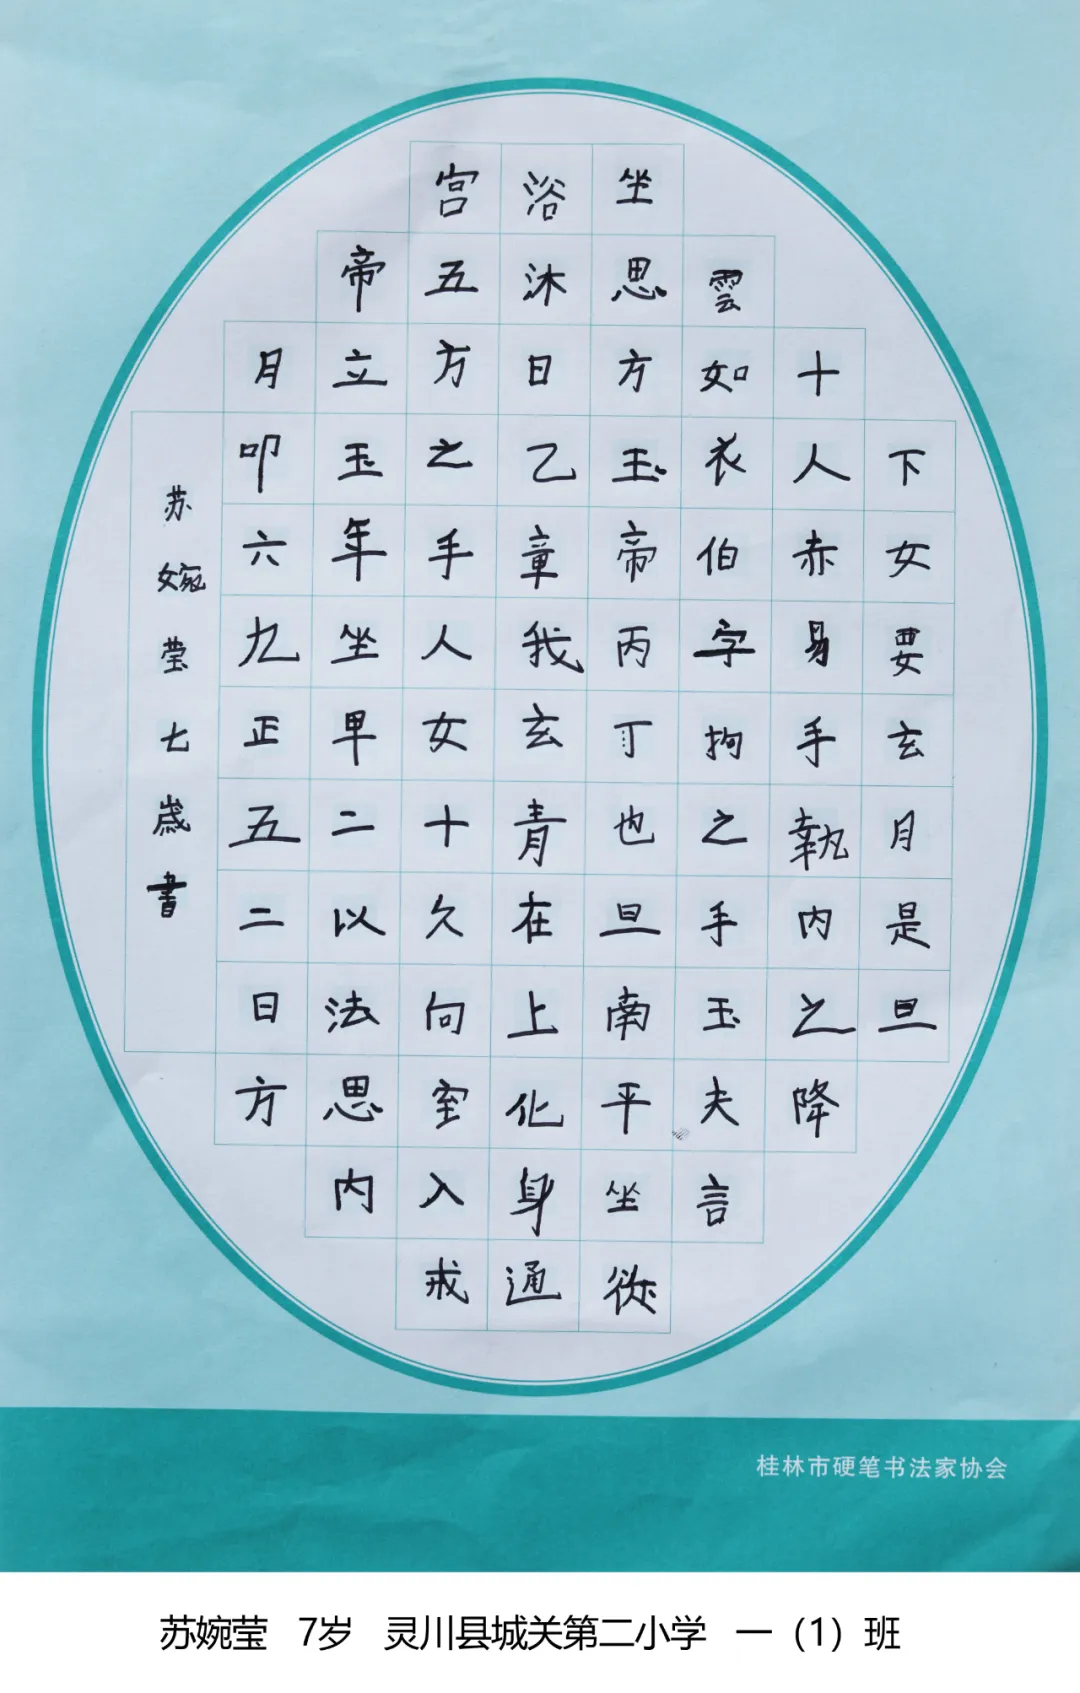 下女要玄月是旦
十人赤易手執内之降
雲如衣伯字拘之手玉夫言
坐思方玉帝丙丁也旦南平坐從
浴沐日乙章我玄青在上化身通
宫五方之手人女十久向室入戒
帝立玉年坐早二以法思内
月叩六九正五二日方
苏婉莹七歲書
桂林市硬笔书法家协会
苏婉莹 7岁 灵川县城关第二小学 一（1）班